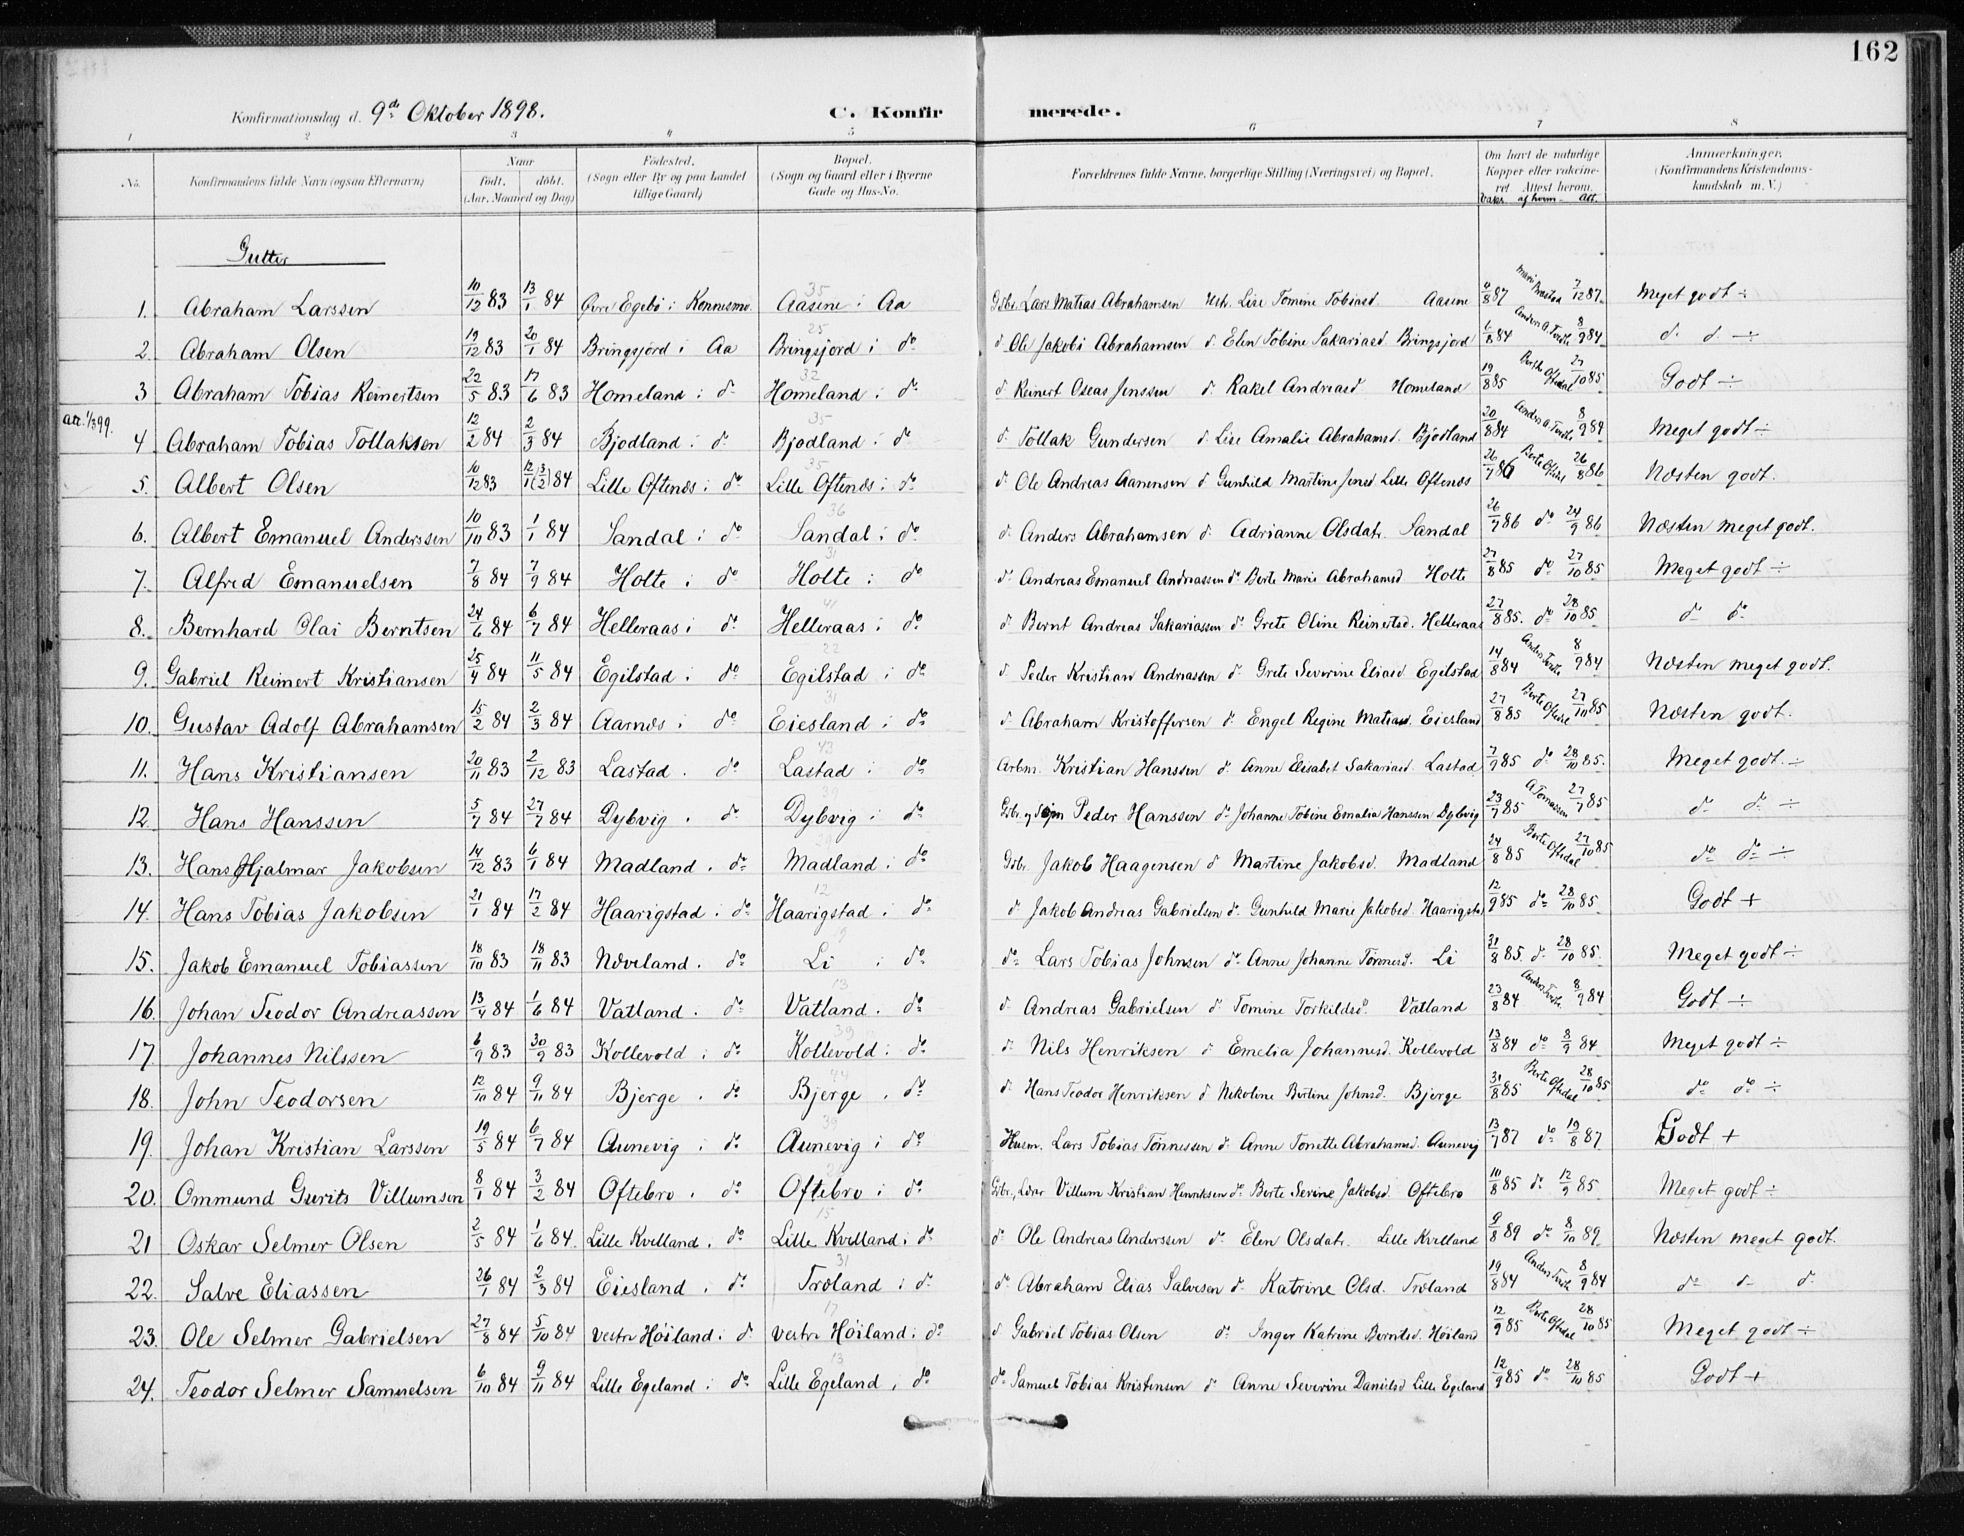 162
Konfirmationsdag d. 9de Oktober 1898. C. Konfirmerede.
1 2 3 4 5 6 7 8
No. Konfirmandens fulde Navn (ogsaa Efternavn) Naar født. døbt. (Aar, Maaned og Dag) Fødested. (Sogn eller By og paa Landet tillige Gaard) Bopæl. (Sogn og Gaard eller i Byerne Gade og Hus-No. Forældrenes fulde Navne, borgerlige Stilling (Næringsvei) og Bopæl. Om havt de naturlige Kopper eller vakcineret. Attest herom. Vaks. af hvem. Att. Anmærkninger. (Konfirmandens Kristendomskundskab m. V.)
Gutter
1. Abraham Larssen 10/12 83 13/1 84 Øvre Egebø i Konnesmo. Aasene i Aa 35 Gdbr. Lars Matias Abrahamsen Hst. Lise Tomine Tobiasd. Aasene 4/8 87 7/12 87. Meget godt ÷
2. Abraham Olsen 19/12 83 20/1 84 Bringsjord i Aa Bringsjord i do 25 d. Ole Jakobi Abrahamsen d. Elen Tobine Sakariasd. Bringsjord 1/8 84 Anders A Tveth. 8/9 84 d. d. ÷
3 Abraham Tobias Reinertsen 22/5 83 17/6 83 Homeland i d. Homeland i d. 32 d. Reinert Oseas Jenssen d. Rakel Andreasd Homeland 19/8 85 Berthe Oftedal 27/10 85 Godt ÷
att. 1/3 99. 4 Abraham Tobias Tollaksen 12/2 84 2/3 84 Bjodland i d. Bjodland i do 35 d. Tollak Gundersen d. Lise Amalie Abrahamsd. Bjodland 20/8 84 Anders A Tveth. 8/9 84 Meget godt ÷
5. Albert Olsen 10/12 83 12/1 (3/2) 84 Lille Oftenæs i do Lille Oftenæs i do 35 d. Ole Andreas Aanensen d Gunhild Martine Jensd Lille Oftenæs 26/7 86 Berte Oftedal 26/8 86 Næsten godt.
6. Albert Emanuel Anderssen 10/10 83 1/1 84 Sandal i do Sandal i do 36 d. Anders Abrahamsen d. Adrianne Olsdatr. Sandal 26/7 86 do 24/9 86 Næsten meget godt.
7. Alfred Emanuelsen 7/8 84 7/9 84 Holte i do Holte i do 31 d. Andreas Emanuel Andreassen do Berte Marie Abrahamsd Holte 27/8 85 do 27/10 85 Meget godt ÷
8. Bernhard Olai Berntsen 24/6 84 6/7 84 Helleraas i do Helleraas i do 41 d. Bernt Andreas Sakariassen do Grete Oline Reinertsd. Helleraas 27/8 85. do 28/10 85 do do
9. Gabriel Reinert Kristiansen 25/4 84 11/5 84 Egilstad i do Egilstad i do 22 d. Peder Kristian Andreassen d. Grete Severine Eliasd Egilstad 14/8 84 Anders Tveth. 8/9 84 Næsten meget godt.
10. Gustav Adolf Abrahamsen 15/2 84 2/3 84 Aarnæs i do Eiesland i do 31 d. Abraham Kristoffersen d. Engel Regine Matiasd. Eiesland 27/8 85 Berte Oftedal 27/10 85 Næsten godt.
11. Hans Kristiansen 20/11 83 2/12 83 Lastad i do Lastad i do 43 Arbm. Kristian Hanssen d. Anne Elisabet Sakariasd. Lastad 7/9 85 do 28/10 85. Meget godt. ÷
12. Hans Hanssen 5/7 84 27/7 84 Dybvig i do Dybvig i do Gdbr. og Peder Hanssen do Johanne Tobine Emalia Hanssen Dybvig 23/7 85 A Tomassen 27/7 85 do do ÷
13. Hans Hjalmar Jakobsen 14/12 83 6/1 84 Madland i do Madland i do Gdbr. Jakob Haagensen d Martine Jakobsd. Madland 24/8 85 Berte Oftedal 27/10 85 do do ÷
14. Hans Tobias Jakobsen 21/1 84 17/2 84 Haarigstad i do Haarigstad i do 12 d. Jakob Andreas Gabrielsen do Gunhild Marie Jakobsd. Haarigstad 12/9 85 do 28/10 85 Godt +
15. Jakob Emanuel Tobiassen 18/10 83 18/11 83 Næveland i do Li i do do Lars Tobias Johnsen do Anne Johanne Tørresd. Li 31/8 85. d. 28/10 85. Meget godt ÷
16. Johan Teodor Andreassen 13/4 84 1/6 84 Vatland i do Vatland i do 13 d. Andreas Gabrielsen d. Tomine Torkildsd Vatland 23/8 84 Anders Tveth. 8/9 84 Godt ÷
17. Johannes Nilssen 6/9 83 30/9 83 Kollevold i do Kollevold i do 39 d. Nils Henriksen d Emelia Johannesd. Kollevold 13/8 84 do 8/9 84 Meget godt ÷
18. John Teodorsen 12/10 84 9/11 84 Bjerge i do Bjerge i do 44 d. Hans Teodor Henriksen d Nikoline Bertine Johnsd. Bjerge 31/8 85 Berte Oftedal 28/10 85 do do ÷
19. Johan Kristian Larssen 19/5 84 6/7 84 Aunevig i do Aunevig i do 39 Husm. Lars Tobias Tønnessen d. Anne Tonette Abrahamsd. Aunevig 13/7 87 do 19/8 87 Godt +
20. Ommund Gurits Villumsen 8/1 84 3/2 84 Oftebro i do Oftebro i do Gdbr., Lærer Villum Kristian Henriksen do Berte Serine Jakobsd. Oftebro 10/8 85 d. 12/9 85 Meget godt ÷
21 Oskar Selmer Olsen 2/5 84 1/6 84. Lille Kvelland i do Lille Kvelland i do 15 d. Ole Andreas Anderssen do Elen Olsdatr. Lille Kvelland 9/8 89 do 8/10 89 Næsten meget godt.
22. Salve Eliassen 26/1 84 2/3 84 Eiesland i do Træland i do 31 do Abraham Elias Salvesen d. Katrine Olsd. Træland 19/8 84 Anders Tveth 8/9 84 do d. d.
23. Ole Selmer Gabrielsen 27/8 84 5/10 84 vestre Høiland i d vestre Høiland i do 17 d Gabriel Tobias Olsen do Inger Katrine Berntsd. Høiland 12/9 85 Berte Oftedal 28/10 85 Meget godt ÷
24. Teodor Selmer Samuelsen 6/10 84 9/11 84 Lille Egeland i do Lille Egeland i do 13 do Samuel Tobias Kristensen d. Anne Severine Danielsd Lille Egeland 12/9 85 do 28/10 85 Godt +